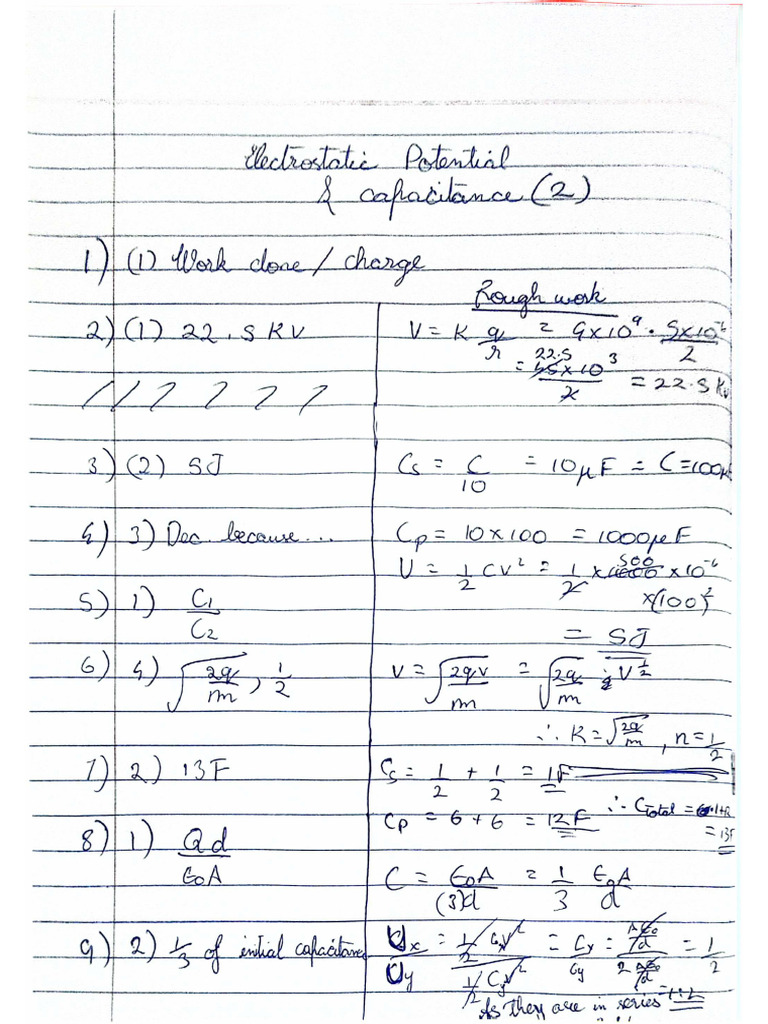 Electrostatic Potential
& capacitance (2)
1) (1) Work done / charge
Rough work
2) (1) 22.5 KV
V = K q/r = 9×10^9 . 5×10^-6/2
= 45×10^3/2 = 22.5 KV
22.5
3) (2) 5J
Cs = C/10 = 10μF = C = 100μ
4) 3) Dec. because...
Cp = 10×100 = 1000μF
U = 1/2 CV² = 1/2 × 1000 × 10^-6
500
×(100)²
5) 1) C1/C2
= 5J
6) 4) √(2q/m), 1/2
V = √(2qV/m) = √(2q/m) V^1/2
∴ K = √(2q/m), n = 1/2
7) 2) 13F
Cs = 1/2 + 1/2 = 1F
Cp = 6+6 = 12F ∴ CTotal = 1+12
= 13F
8) 1) Qd/ε0A
C = ε0A/(3)d = 1/3 ε0A/d
9) 2) 1/3 of initial capacitance
Ux/Uy = 1/2 CxV²/1/2 CyV² = Cx/Cy = Aε0/d/2 Aε0/d = 1/2
As they are in series = 1:2